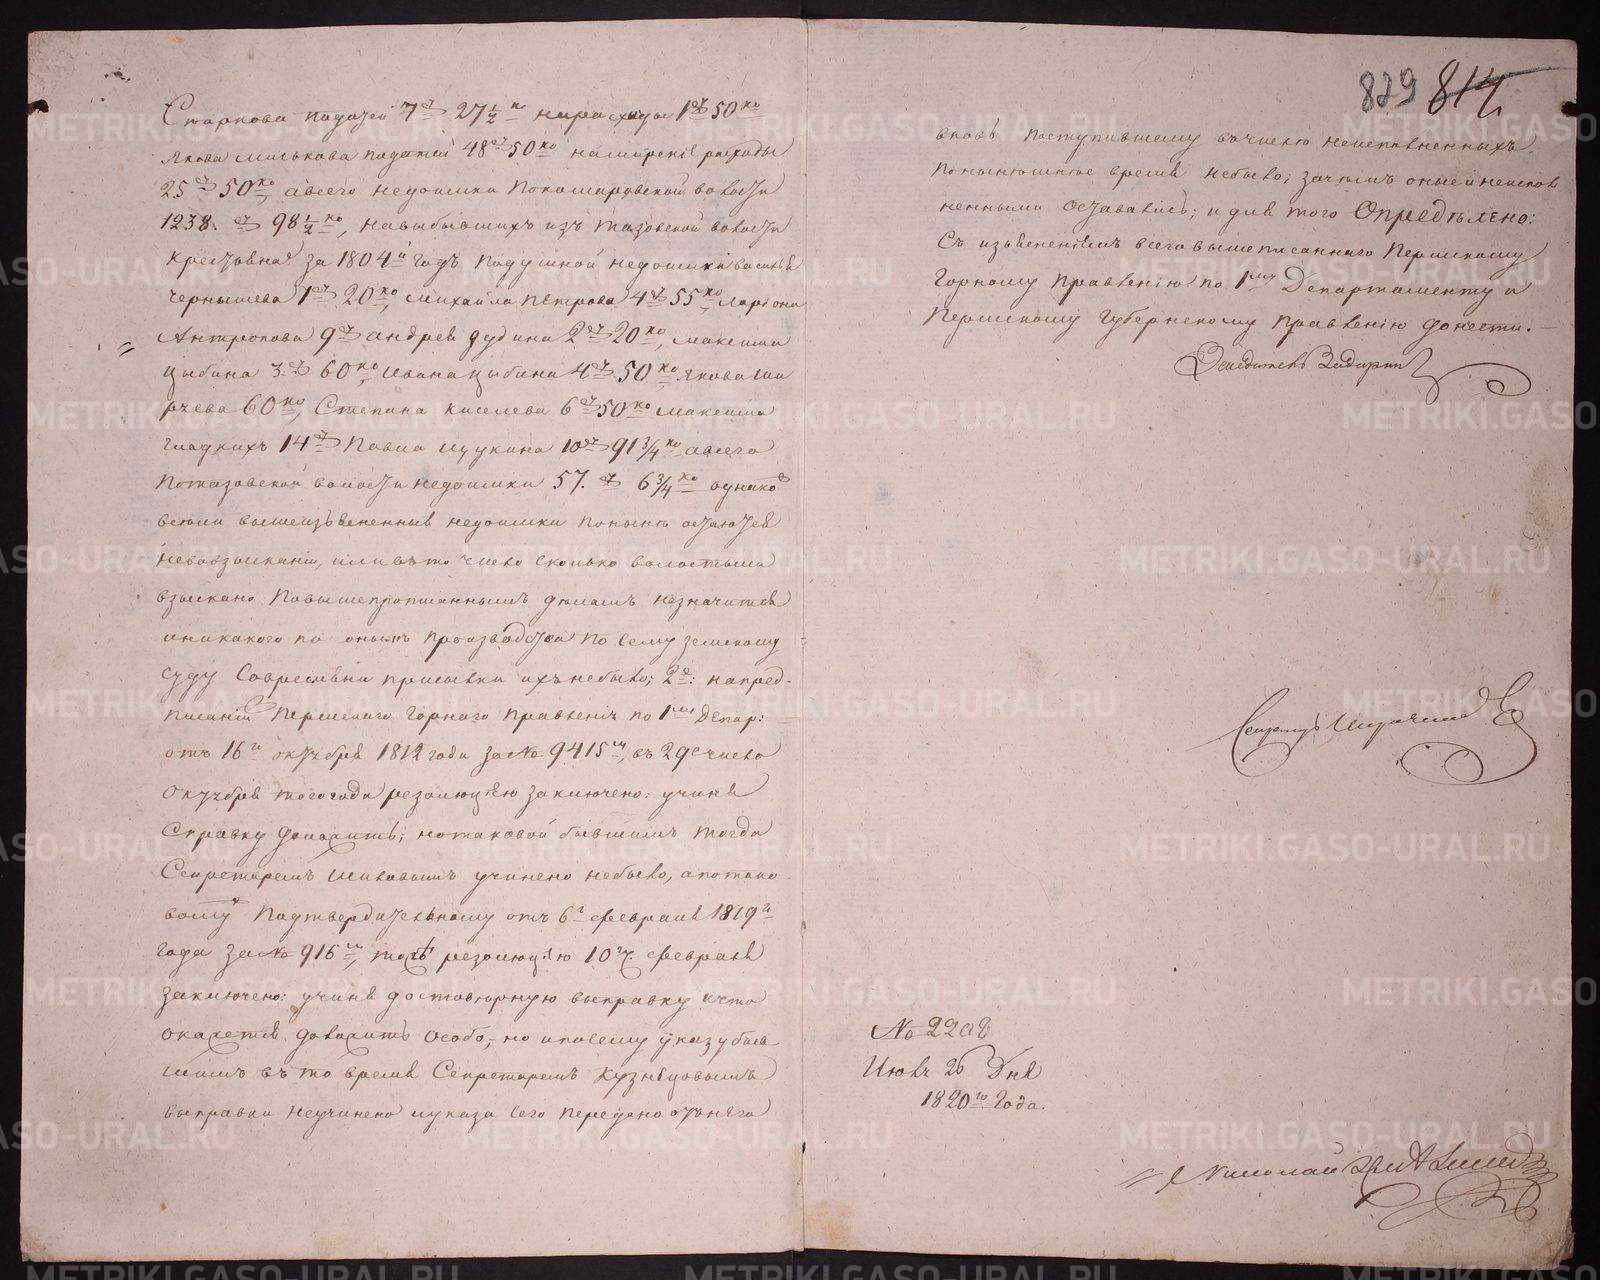 Старкова податей 7 27 1/2 ко на расходы 1 50 ко
Якова Милькова податей 48 50 ко на мирскіе расходы
25 50 ко, авсего недоимки Покашировской волости
1238. 98 1/2 ко, навыбывшихъ изъ Тазовской волости
крестьянах за 1804й годъ подушной недоимки Василья
Чернышева 1 20 ко, Михайла Петрова 4 55 ко, Лариона
Антропова 9 Андрея Дудина 2 20 ко, Максима
Цыбина 3 60 ко, Ивана Цыбина 4 50 ко, Якова Ши
рчева 60 ко, Степана Киселева 6 50 ко Максима
Гладкихъ 14 Павла Щукина 10 91 3/4 ко, авсего
Потазовской волости недоимки 57. 6 3/4 ко однако
всеми вышеизъясненныя недоимки поныне остаются
невовзыскании, или въ то число сколько волостьми
взыскано Повышепрописаннымъ деламъ незначится
иникакого по онымъ производства по сему земскому
суду Современи присылки ихъ небыло; 2е: напред-
писаніи Пермскаго Горнаго Правленія по 1му Депар:
отъ 16го октября 1812 года за № 9415м, въ 29е число
октября того года резолюціею заключено: учиня
Справку доложить; но таковой бывшимъ тогда
Секретаремъ Шиловымъ учинено небыло, а потако
вому Подтвердительному отъ 6го февраля 1819го
года за № 916м, тожъ резолюціею 10го февраля
заключено: учиня достоверную выправку и что
окажется доложить особо,- но и посему указу быв
шимъ въ то время Секретаремъ Кузнецовымъ
выправки неучинено и указа сего передано отънего
829 814
вновь поступившему вочисло неисполненныхъ
Понынешнее время небыло; зачемъ оные и неиспол
ненными оставались; и для того Определено:
Съ изъясненіемъ всего вышеписаннаго Пермскому
Горному Правленію по 1му Департаменту и
Пермскому Губернскому Правленію донести.
Секретарь
№ 2208
Июня 26 Дня
1820го Года.
Николай